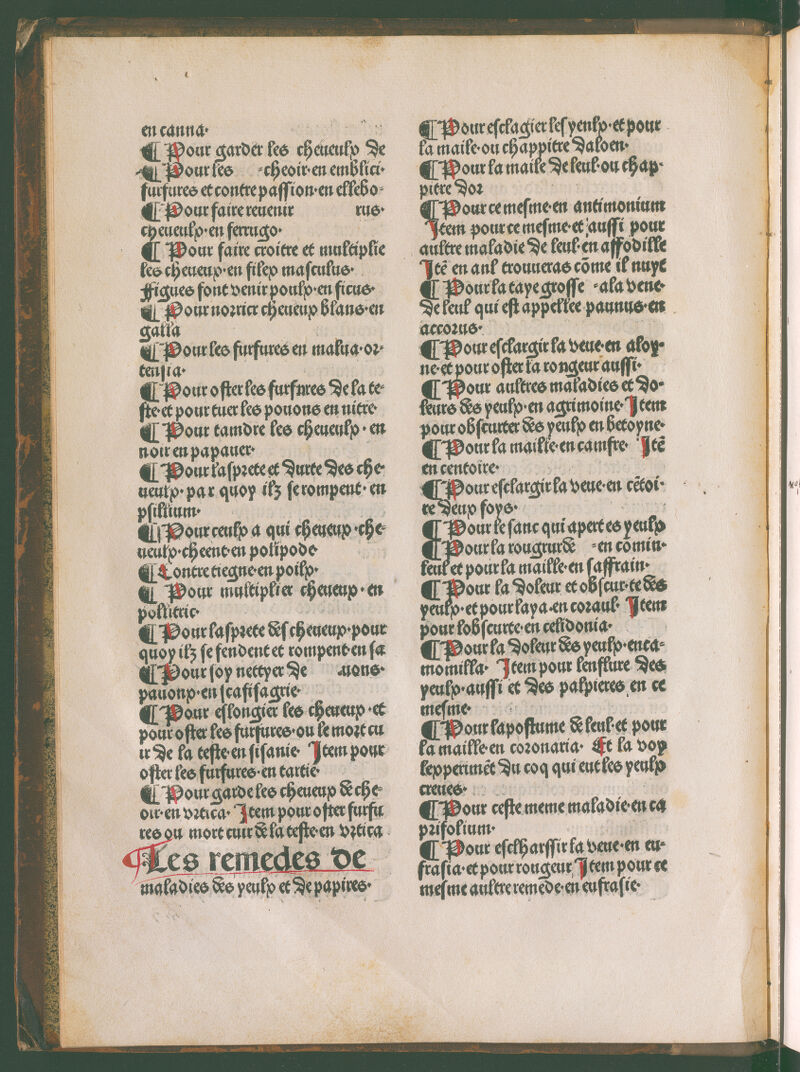 en canna·
¶ Pour garder les cheueulp de
¶ Pour les -cheoir·en emblici·
furfures et contre passion·en ellebo-
¶ Pour faire reuenir rus·
cheueulp·en ferrugo·
¶ Pour faire croitre et multiplie
les cheueup·en filep masculus·
Figues font venir poulp·en ficus·
¶ Pour norrier cheueup blans·en
galla
¶ Pour les furfures en malua·or-
tensia·
¶ Pour oster les furfnres de la te-
ste·et pour tuer les pouons en nitre·
¶ Pour tamdre les cheueulp·en
noir en papauer·
¶ Pour lasprete et durte des che-
ueulp·par quoy ilz se rompent·en
psillium·
¶ Pour ceulp a qui cheueup·che-
ueulp·cheent·en polipode
¶ Contre tiegne·en poilp·
¶ Pour multiplier cheueup·en
pollitric·
¶ Pour lasprete des cheueup·pour
quoy ilz se fendent et rompent·en sa
¶ Pour soy nettyer de uons·
pauonp·en scafisagrie·
¶ Pour eslongier les cheueup·et
pour oster les furfures·ou le mort cu
ir de la teste·en sisanie· Item pour
oster les furfures·en tartie·
¶ Pour garde les cheueup de che-
oir·en vrtica· Item pour oster furfu
res ou mort cuir de la teste·en vrtica
¶ Les remedes de
maladies des yeulp et de papires·
¶ Pour esclagier les yeulp·et pour
la maile·ou chappitre daloen·
¶ Pour la maile de leul·ou chap-
pitre dor
¶ Pour ce mesme·en antimonium
Item pour ce mesme·et aussi pour
aultre maladie de leul·en affodille
Itē en anl trouueras cōme il nuyt
¶ Pour la taye grosse -ala vene·
de leul qui est appellee pannus·en
accorus·
¶ Pour esclargir la veue·en aloy-
ne·et pour oster la rongeur aussi·
¶ Pour aultres maladies et do-
leurs des yeulp·en agrimoine· Item
pour obscurter des yeulp en betoyne·
¶ Pour la maille·en camfre· Itē
en centoire·
¶ Pour esclargir la veue·en cētoi-
re deup foys·
¶ Pour le sanc qui apert es yeulp
¶ Pour la rougrur de -en comin·
leul et pour la maille·en saffrain·
¶ Pour la doleur et obscur·te des
yeulp·et pour laya·en coraul· Item
pour lobscurte·en celidonia·
¶ Pour la doleur des yeulp·en ca-
momilla· Item pour lenflure des
yeulp·aussi et des palpieres en ce
mesme·
¶ Pour lapostume de leul·et pour
la maille·en coronaria· Et la voy
lepperimēt du coq qui eut les yeulp
creues·
¶ Pour ceste meme maladie·en ca
prifolium·
¶ Pour esclharssir la veue·en eu-
frasia·et pour rougeur Item pour ce
mesme aultre remede·en eufrasie·